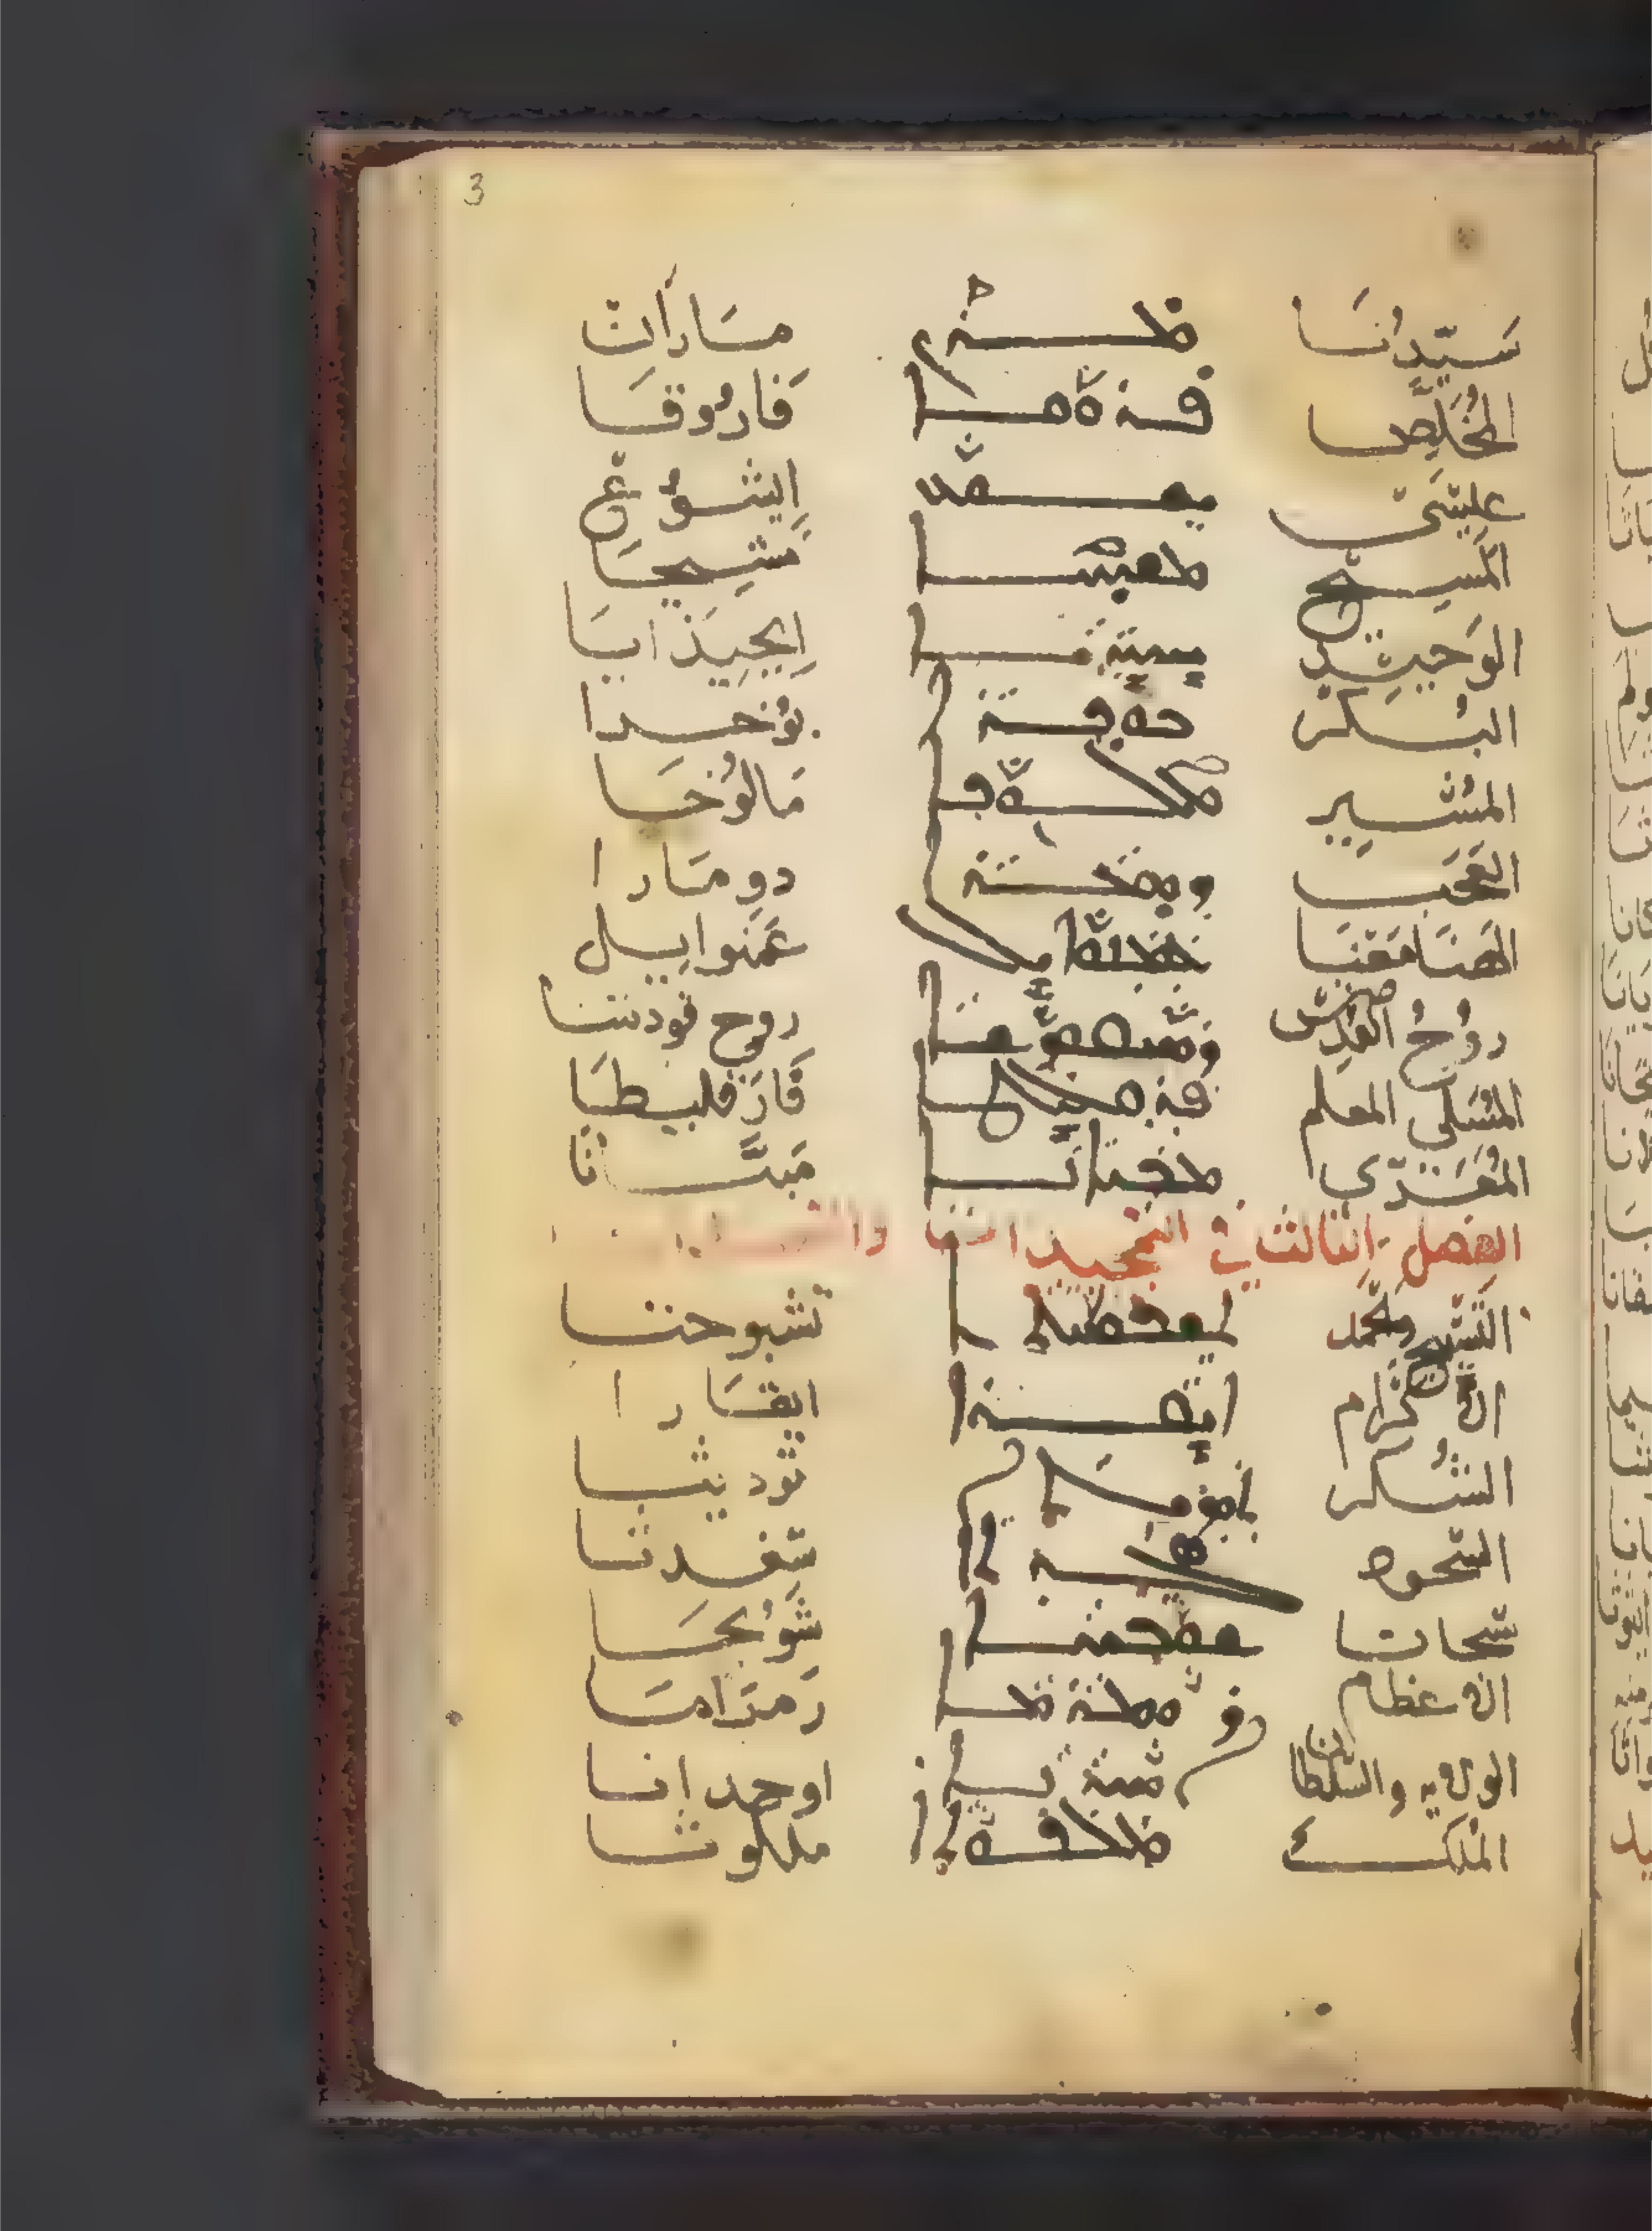 3
سَيّدُنَا ܡܪܢ مَارَان
المُخَلِّص ܦܪܘܩܐ فَارُوقَا
عِيسَى ܝܫܘܥ اِيشُوع
المَسِيح ܡܫܝܚܐ مْشِيحَا
الوَحِيد ܝܚܝܕܝܐ اِيحِيذَايَا
البُكر ܒܘܟܪܐ بُوخرا
المُشِير ܡܠܘܟܐ مَالُوخَا
العَجَب ܕܘܡܪܐ دومَارا
الهَنَا مَعَنَا ܥܡܢܘܐܝܠ عَمَنوايِيل
رُوحُ القُدس ܪܘܚܩܘܕܫܐ روح قودشا
المُسَلي المعلم ܦܪܩܠܝܛܐ فَارَقلِيطَا
المُعَزّي ܡܒܝܐܢܐ مَبيَّانَا
الفصل الثالث في التمجيدات
التَسبيح ܬܫܒܘܚܬܐ تَشبوحتا
الاكرام ܐܝܩܪܐ ايقَارا
الشُكر ܬܘܕܝܬܐ تَوديثا
السجود ܣܓܕܬܐ سَغدثا
سُبحانا ܫܘܒܚܐ شُوبحَا
الاعظام ܪܘܡܪܡܐ
الولايه والسلطان ܐܘܚܕܢܐ اوحدانا
المُلك ܡܠܟܘܬܐ ملكوثا